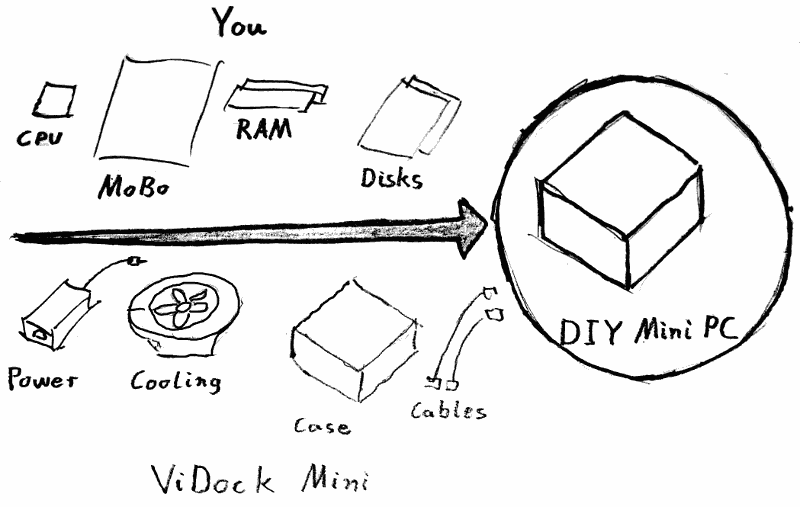 You
CPU
MoBo
RAM
Disks
DIY Mini PC
Power
Cooling
Case
Cables
ViDock Mini